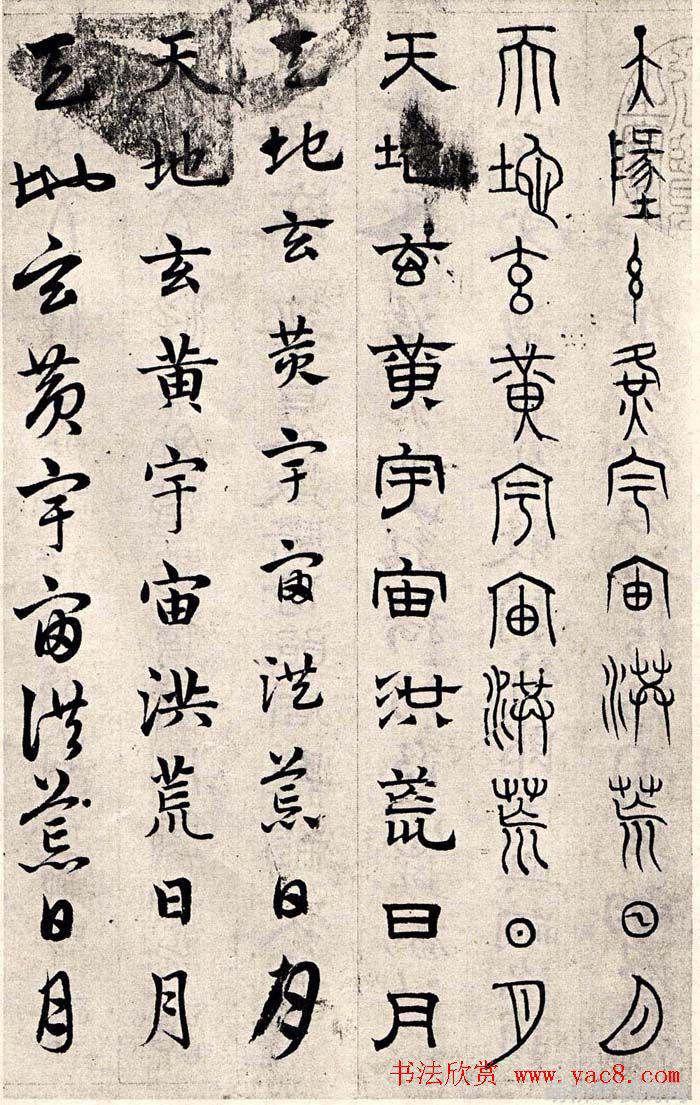 天墬玄黃宇宙洪荒日月
天地玄黃宇宙洪荒日月
天地玄黃宇宙洪荒日月
天地玄黃宇宙洪荒日月
天地玄黃宇宙洪荒日月
天地玄黃宇宙洪荒日月
书法欣赏 www.yac8.com